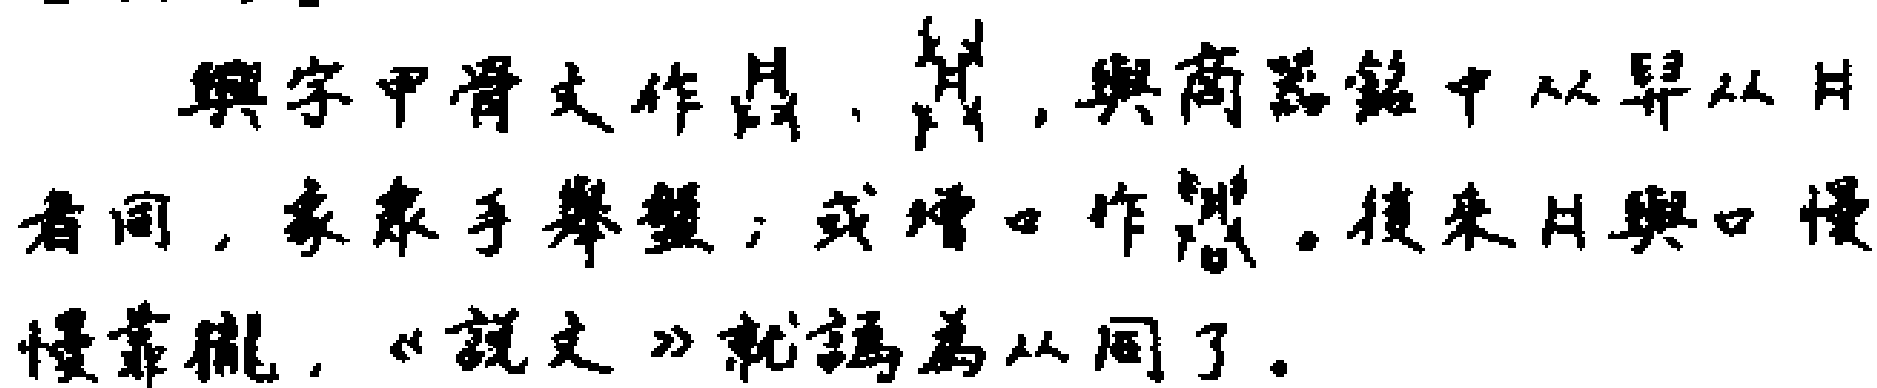 興字甲骨文作、，與商器銘中从舁从H
者同，象衆手舉盤；或增口作。後來H與口慢
慢靠攏，《說文》就譌為从同了。